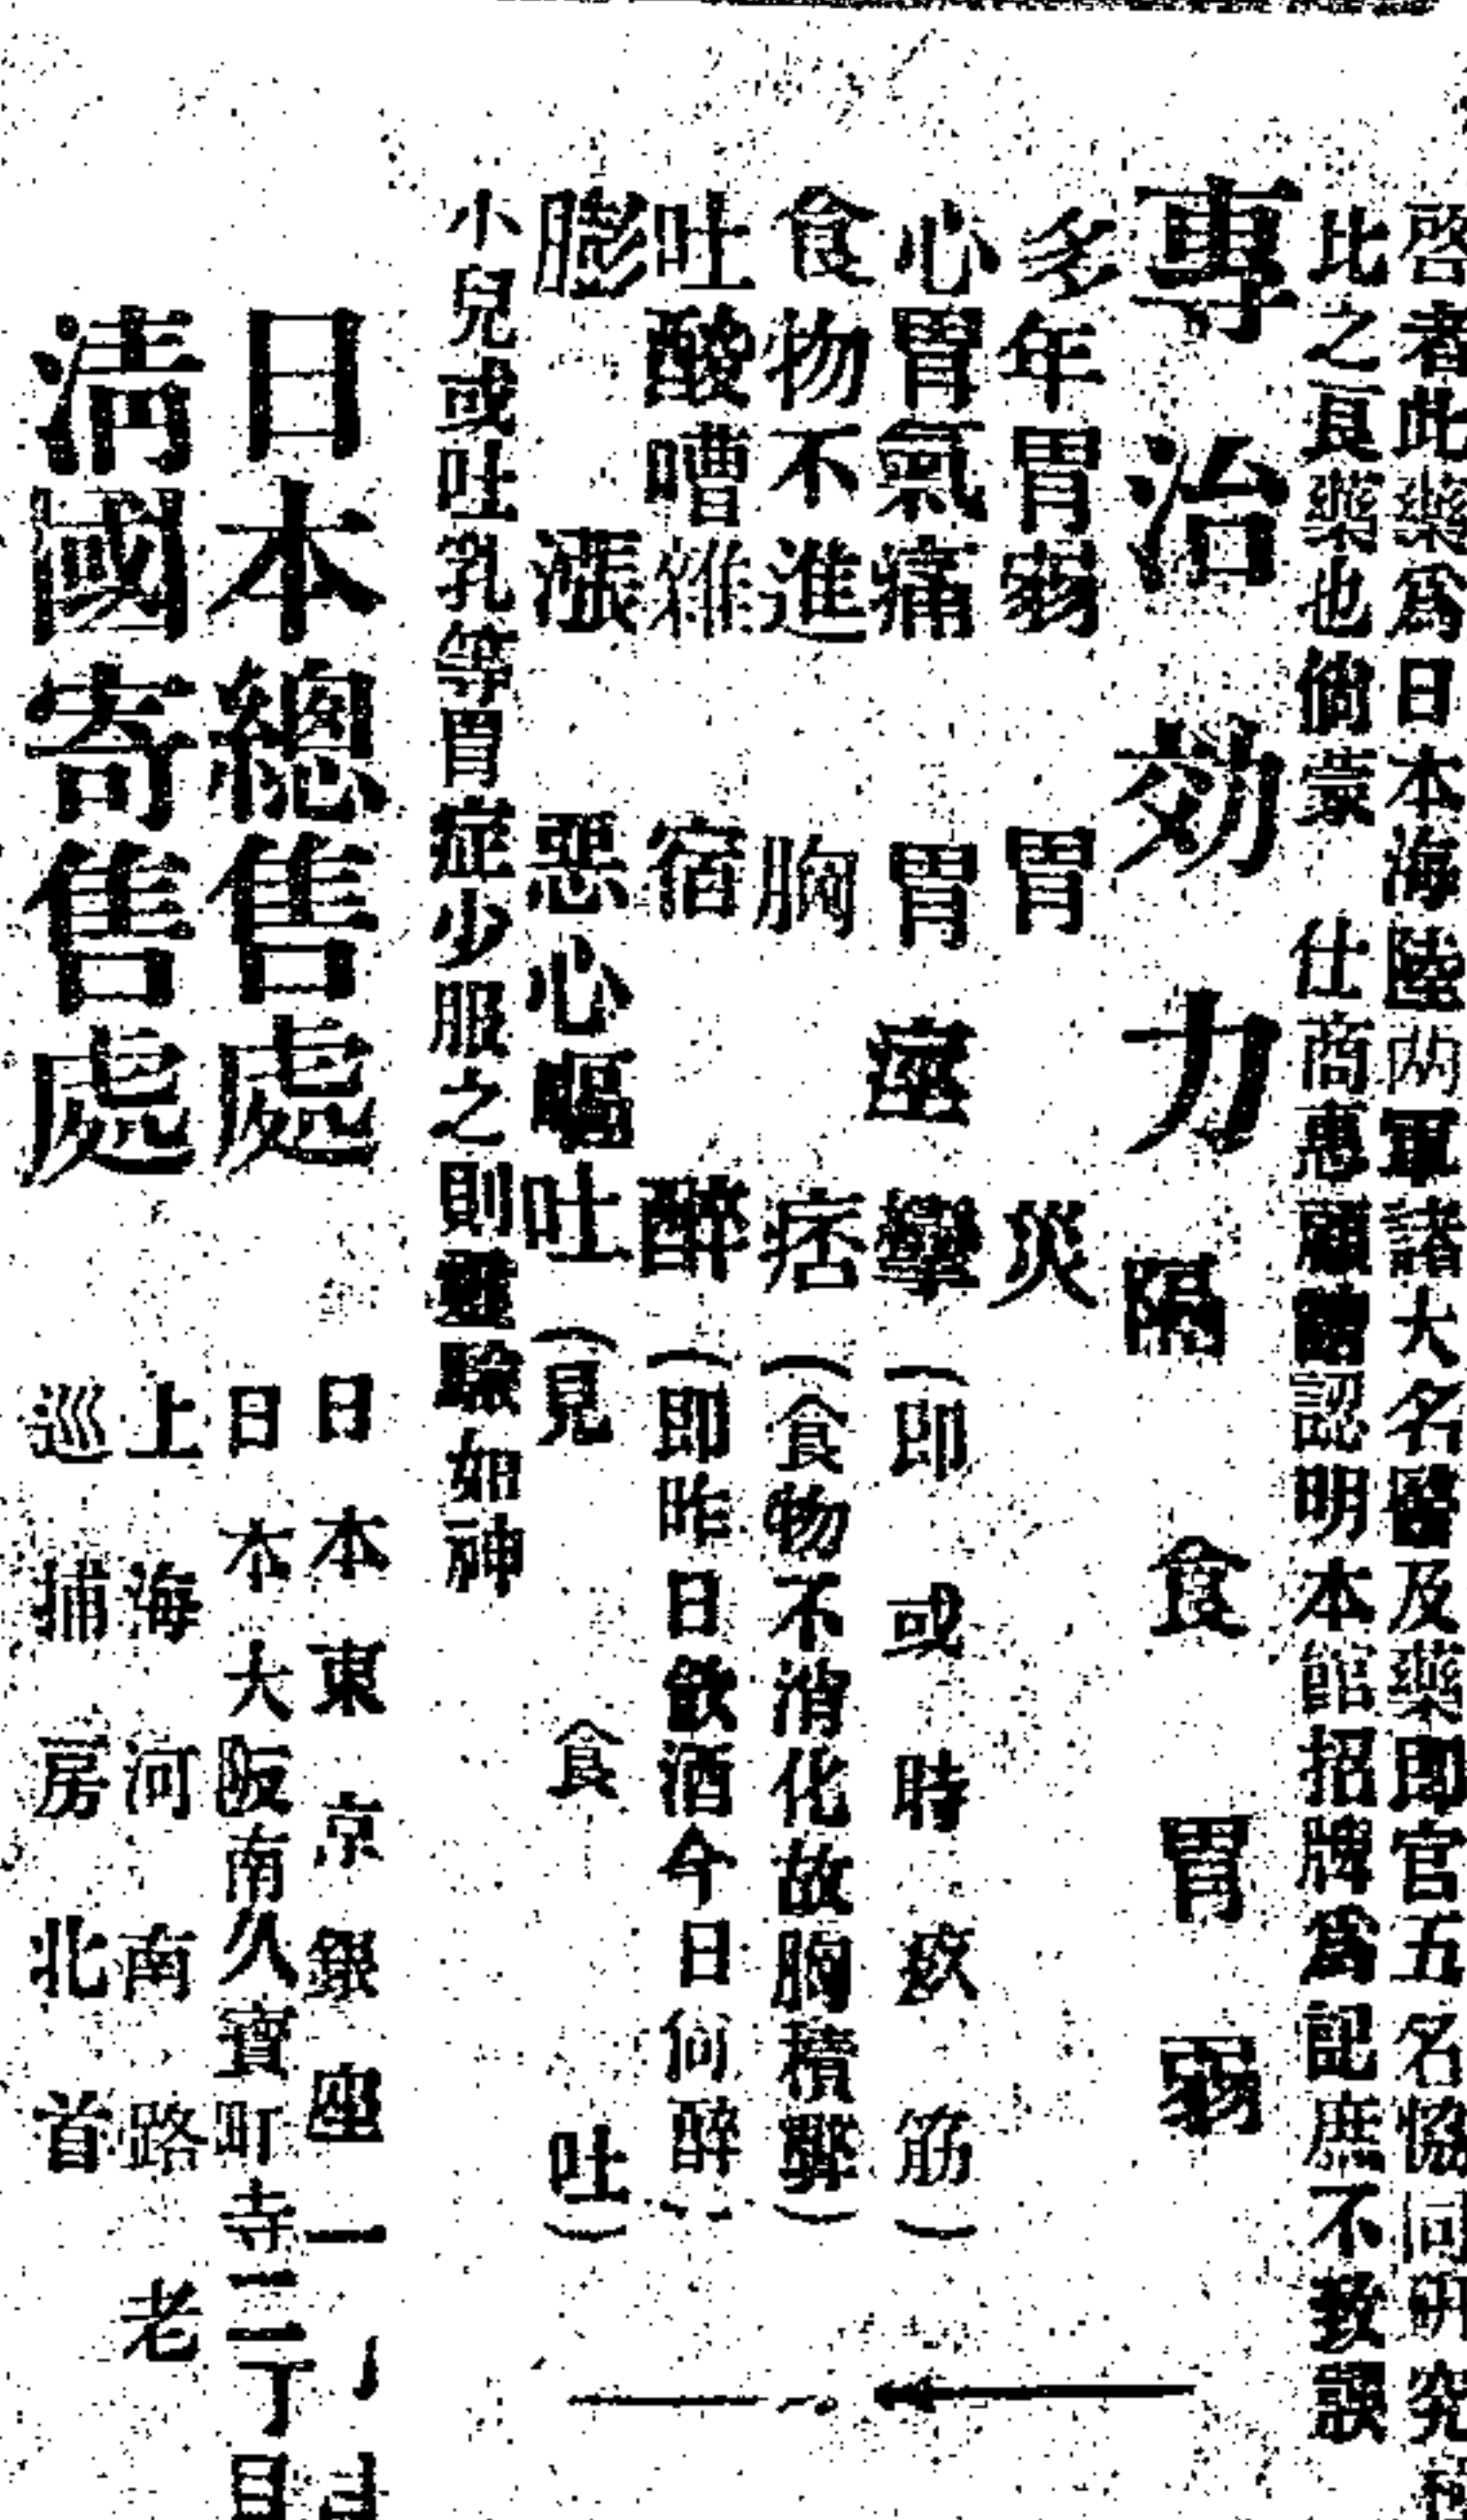 啓者此藥爲日本海陸两軍諸大名醫及藥即官五名恊同研究
此之良藥也倘蒙 仕商惠顧請認明本館招牌爲記庶不致誤
專治効力 隔食胃弱
多年胃弱 胃災
心胃氣痛 胃痙攣(即或時欬筋)
食物不進 胸痞(食物不消化故胸積弊)
吐酸嘈雜 宿醉(即昨日飲酒今日何醉)
膨漲 惡心嘔吐(見食吐)
小兒或吐乳等胃症少服之則靈驗如神
日本總售處 日本東京銀座一丁目
日本大阪南久寶町寺二丁目
清國寄售處 上海河南路老
巡捕房北首